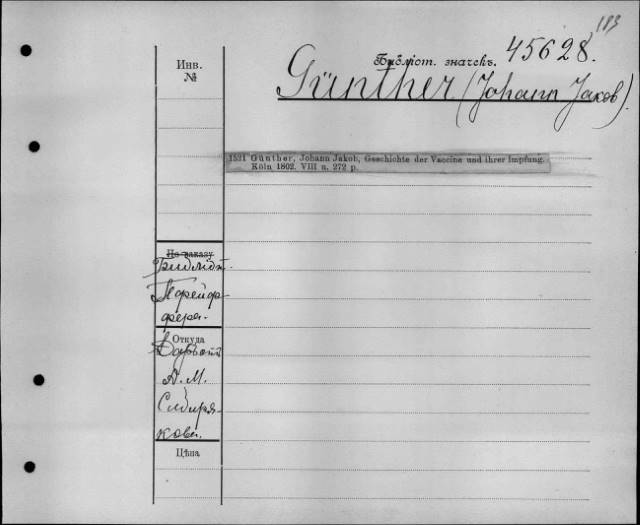 183
Инв.
№
Библіот. значекъ. 45628.
Günther (Johann Jakob).
1531 Günther, Johann Jakob, Geschichte der Vaccine und ihrer Impfung.
Köln 1802. VIII u. 272 p.
По заказу
Библіот.
Пфейф-
фера.
Откуда
А. М.
Сибиря-
кова.
Цѣна